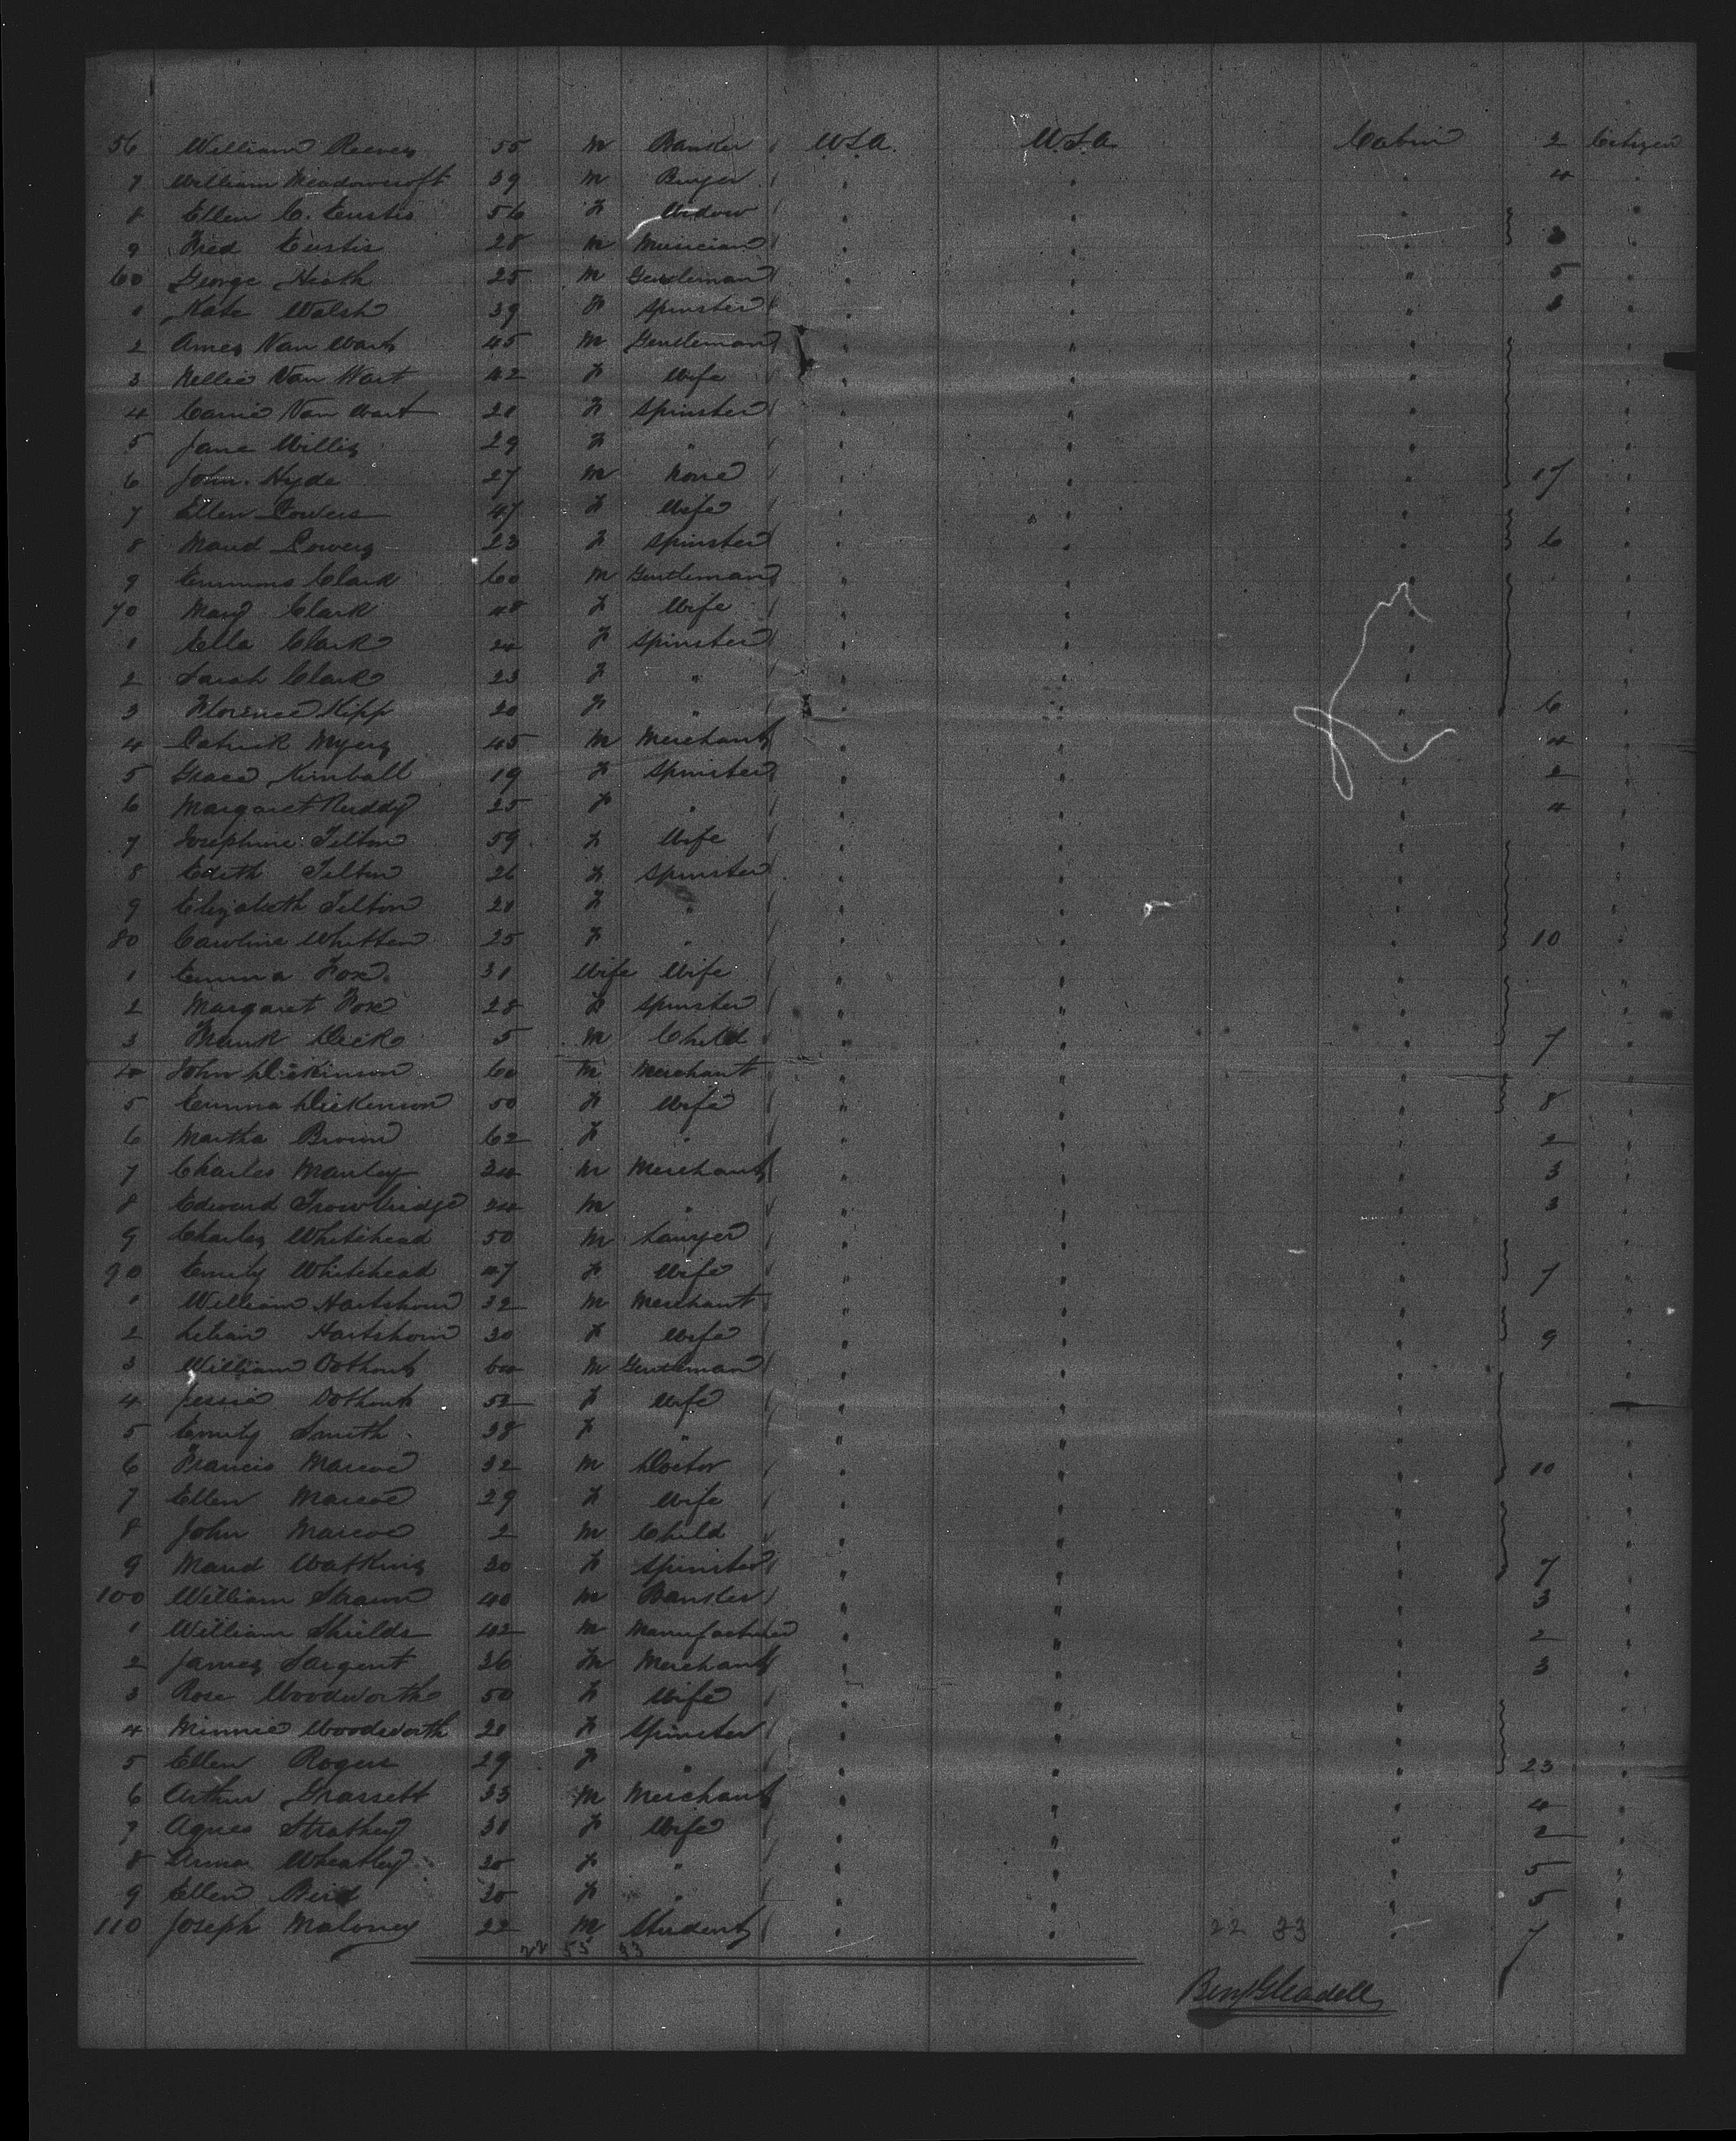 56 William Reeves 55 M Banker U.S.A. U.S.A. Cabin 2 Citizen
7 William Meadowcroft 39 M Buyer " " " 4 "
8 Ellen C. Eustis 56 F Widow " " " "
9 Fred Eustis 28 M Musician " " " 3 "
60 George Heath 25 M Gentleman " " " 5 "
1 Kate Walsh 39 F Spinster " " " 3 "
2 Ames Van Wart 45 M Gentleman " " " "
3 Nellie Van Wart 42 F Wife " " " "
4 Carrie Van Wart 21 F Spinster " " " "
5 Jane Willis 29 F " " " " "
6 John Hyde 27 M None " " " 17 "
7 Ellen Powers 47 F Wife " " " "
8 Maud Powers 23 F Spinster " " " 6 "
9 Clark 60 M Gentleman " " " "
70 Mary Clark 48 F Wife " " " "
1 Ella Clark 24 F Spinster " " " "
2 Sarah Clark 23 F " " " " "
3 Florence Kipp 20 F " " " " 6 "
4 Patrick Myers 45 M Merchant " " " 4 "
5 Grace Kimball 19 F Spinster " " " 2 "
6 Margaret Ruddy 25 F " " " " 4 "
7 Josephine Tilton 59 F Wife " " " "
8 Edith Tilton 26 F Spinster " " " "
9 Elizabeth Tilton 21 F " " " " "
80 Caroline Whitten 25 F " " " " 10 "
1 Emma Fox 31 Wife Wife " " " "
2 Margaret Fox 28 F Spinster " " " "
3 Frank Dick 5 M Child " " " 7 "
4 John Dickinson 60 M Merchant " " " "
5 Emma Dickinson 50 F Wife " " " 8 "
6 Martha Brown 62 F " " " " 2 "
7 Charles Manley 34 M Merchant " " " 3 "
8 Edward Trowbridge 24 M " " " " 3 "
9 Charles Whitehead 50 M Lawyer " " " "
90 Emily Whitehead 47 F Wife " " " 7 "
1 William Hartshorn 32 M Merchant " " " "
2 Lilian Hartshorn 30 F Wife " " " 9 "
3 William Oothout 64 M Gentleman " " " "
4 Jessie Oothout 52 F Wife " " " "
5 Emily Smith 38 F " " " " "
6 Francis Marcoe 32 M Doctor " " " 10 "
7 Ellen Marcoe 29 F Wife " " " "
8 John Marcoe 2 M Child " " " "
9 Maud Watkins 20 F Spinster " " " 7 "
100 William Strawn 40 M Banker " " " 3 "
1 William Shields 42 M Manufacturer " " " 2 "
2 James Sargent 36 M Merchant " " " 3 "
3 Rose Woodworth 50 F Wife " " " "
4 Minnie Woodworth 21 F Spinster " " " "
5 Ellen Rogers 29 F " " " " 23 "
6 Arthur Grassett 33 M Merchant " " " 4 "
7 Agnes Strathy 31 F Wife " " " 2 "
8 Anna Wheatley F " " " " 5 "
9 Ellen Bird F " " " " 5 "
110 Joseph Maloney 22 M Student " " 22 33 " 7 "
22 55 33
Benj Gleadell